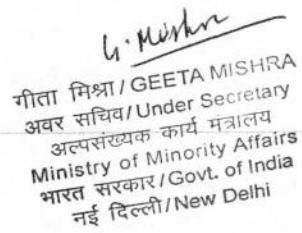 G. Mishra
गीता मिश्रा / GEETA MISHRA
अवर सचिव/Under Secretary
अल्पसंख्यक कार्य मंत्रालय
Ministry of Minority Affairs
भारत सरकार/Govt. of India
नई दिल्ली/New Delhi